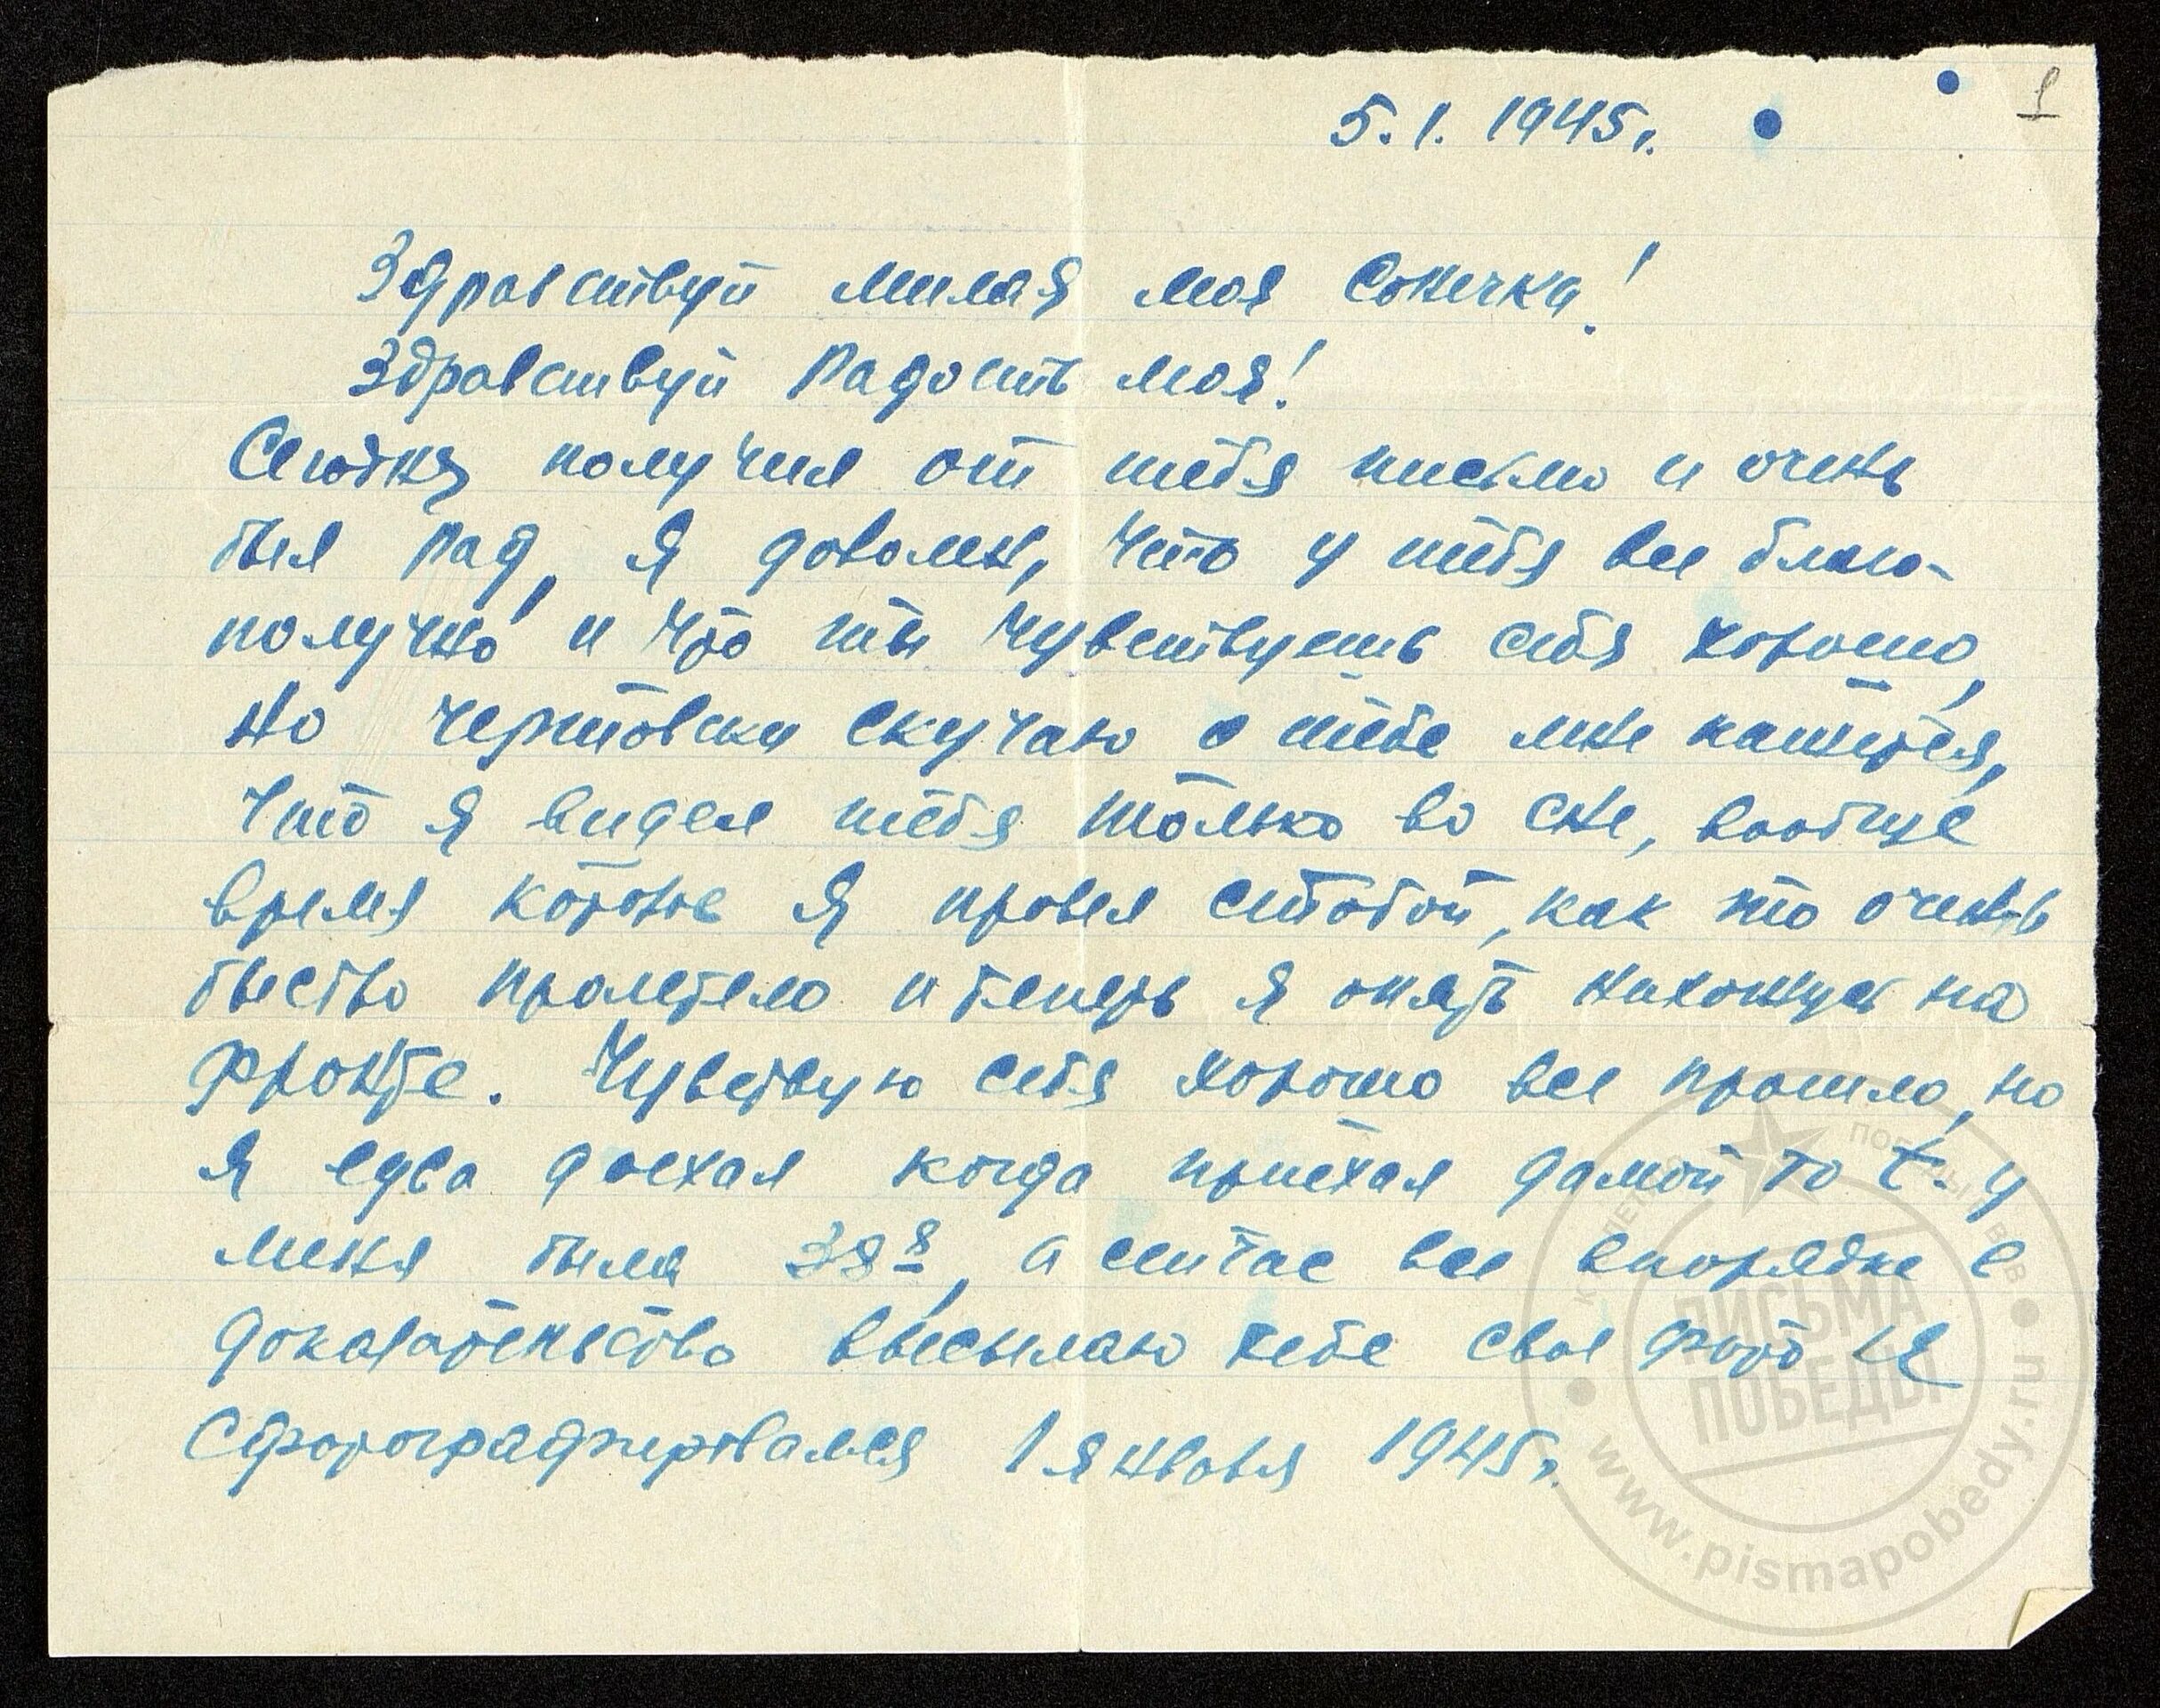 1
5.1.1945г.
Здравствуй милая моя Сонечка!
Здравствуй Радость моя!
Сегодня получил от тебя письмо и очень
был рад, я доволен, что у тебя все благо-
получно и что ты чувствуешь себя хорошо,
но чертовски скучаю о тебе мне кажется,
что я видел тебя только во сне, вообще
время которое я провел стобой, как то очень
быство пролетело и теперь я опять нахожусь на
фронте. Чувствую себя хорошо все прошло, но
я едва доехал когда приехал дамой то t-у
меня была 38 8, а сейчас все впорядке в
доказательство высылаю тебе свое фото я
сфотографировался 1 января 1945г.
К ЛЕТ ПОБЕДЫ В ВОВ
ПИСЬМА
ПОБЕДЫ
www.pismapobedy.ru